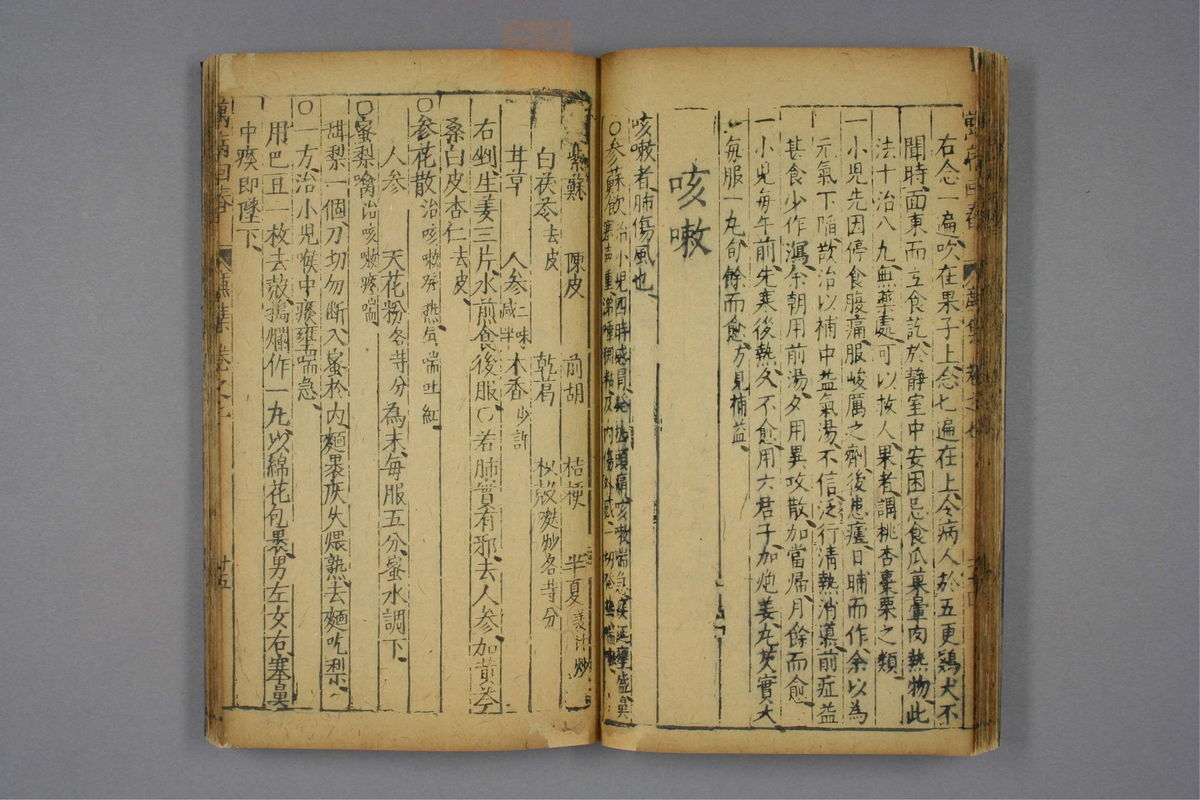 右念一遍吹在果子上念七遍在上令病人於五更鷄犬不
聞時面東而立食訖於靜室中安困忌食瓜菓葷肉熱物此
法十治八九無藥處可以救人果者謂桃杏棗栗之類
一小児先因停食腹痛服峻厲之劑後患瘧日晡而作余以為
元氣下陷欲治以補中益氣湯不信泛行清熱消導前症益
甚食少作瀉余朝用前湯夕用異攻散加當歸月餘而愈
一小児每午前先寒後熱久不愈用六君子加炮姜丸芡實大
每服一丸旬餘而愈方見補益
咳嗽
咳嗽者肺傷風也
○參蘇飲治小児四時感冒發熱頭痛咳嗽喘急痰涎壅盛鼻
塞声重涕唾稠粘及内傷外感一切發熱
紫蘇 陳皮 前胡 桔梗 半夏姜汁炒
白茯苓去皮 乾葛 枳殻麩炒各等分
甘草 人參 木香少許 二味減半
右剉生姜三片水煎食後服○若肺實有邪去人參加黄芩
桑白皮杏仁去皮
○參花散治咳嗽發熱気喘吐紅
人參 天花粉各等分為末每服五分蜜水調下
○蜜梨噙治咳嗽痰喘
甜梨一個刀切勿断入蜜於内麵裹灰火煨熟去麵吃梨
○一方治小児喉中痰壅喘急
用巴豆一枚去殼擣爛作一丸以綿花包裹男左女右塞鼻
中痰即墜下
萬病回春 卷之七 廿五